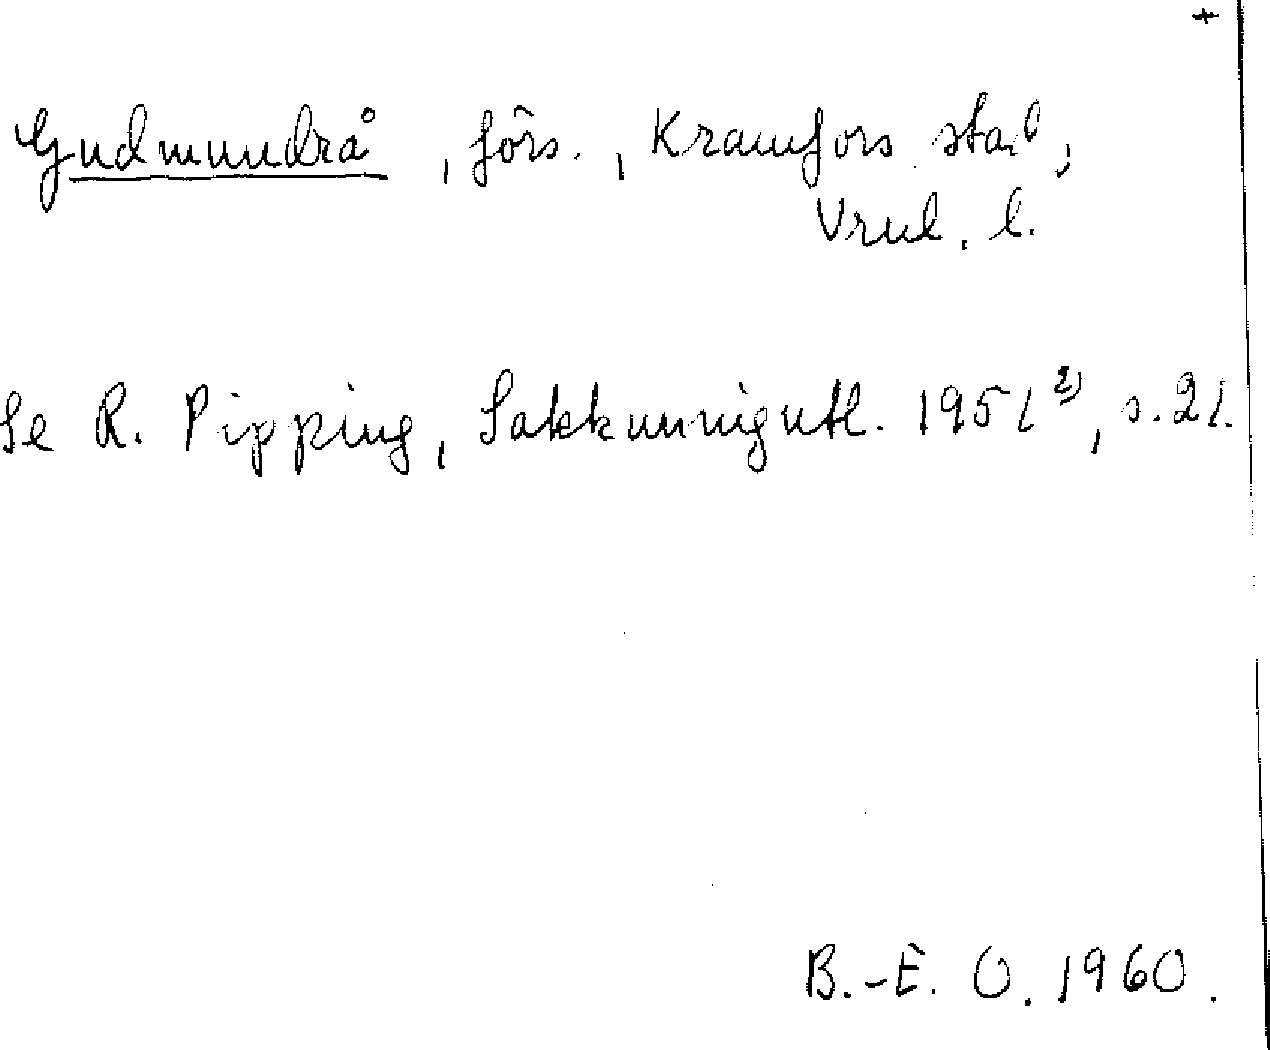 +
Gudmundrå, förs., Kramfors stad,
Vrnl. l.
Se R. Pipping, Sakkunnigutl. 1951 2), s. 21.
B.-E. O. 1960.